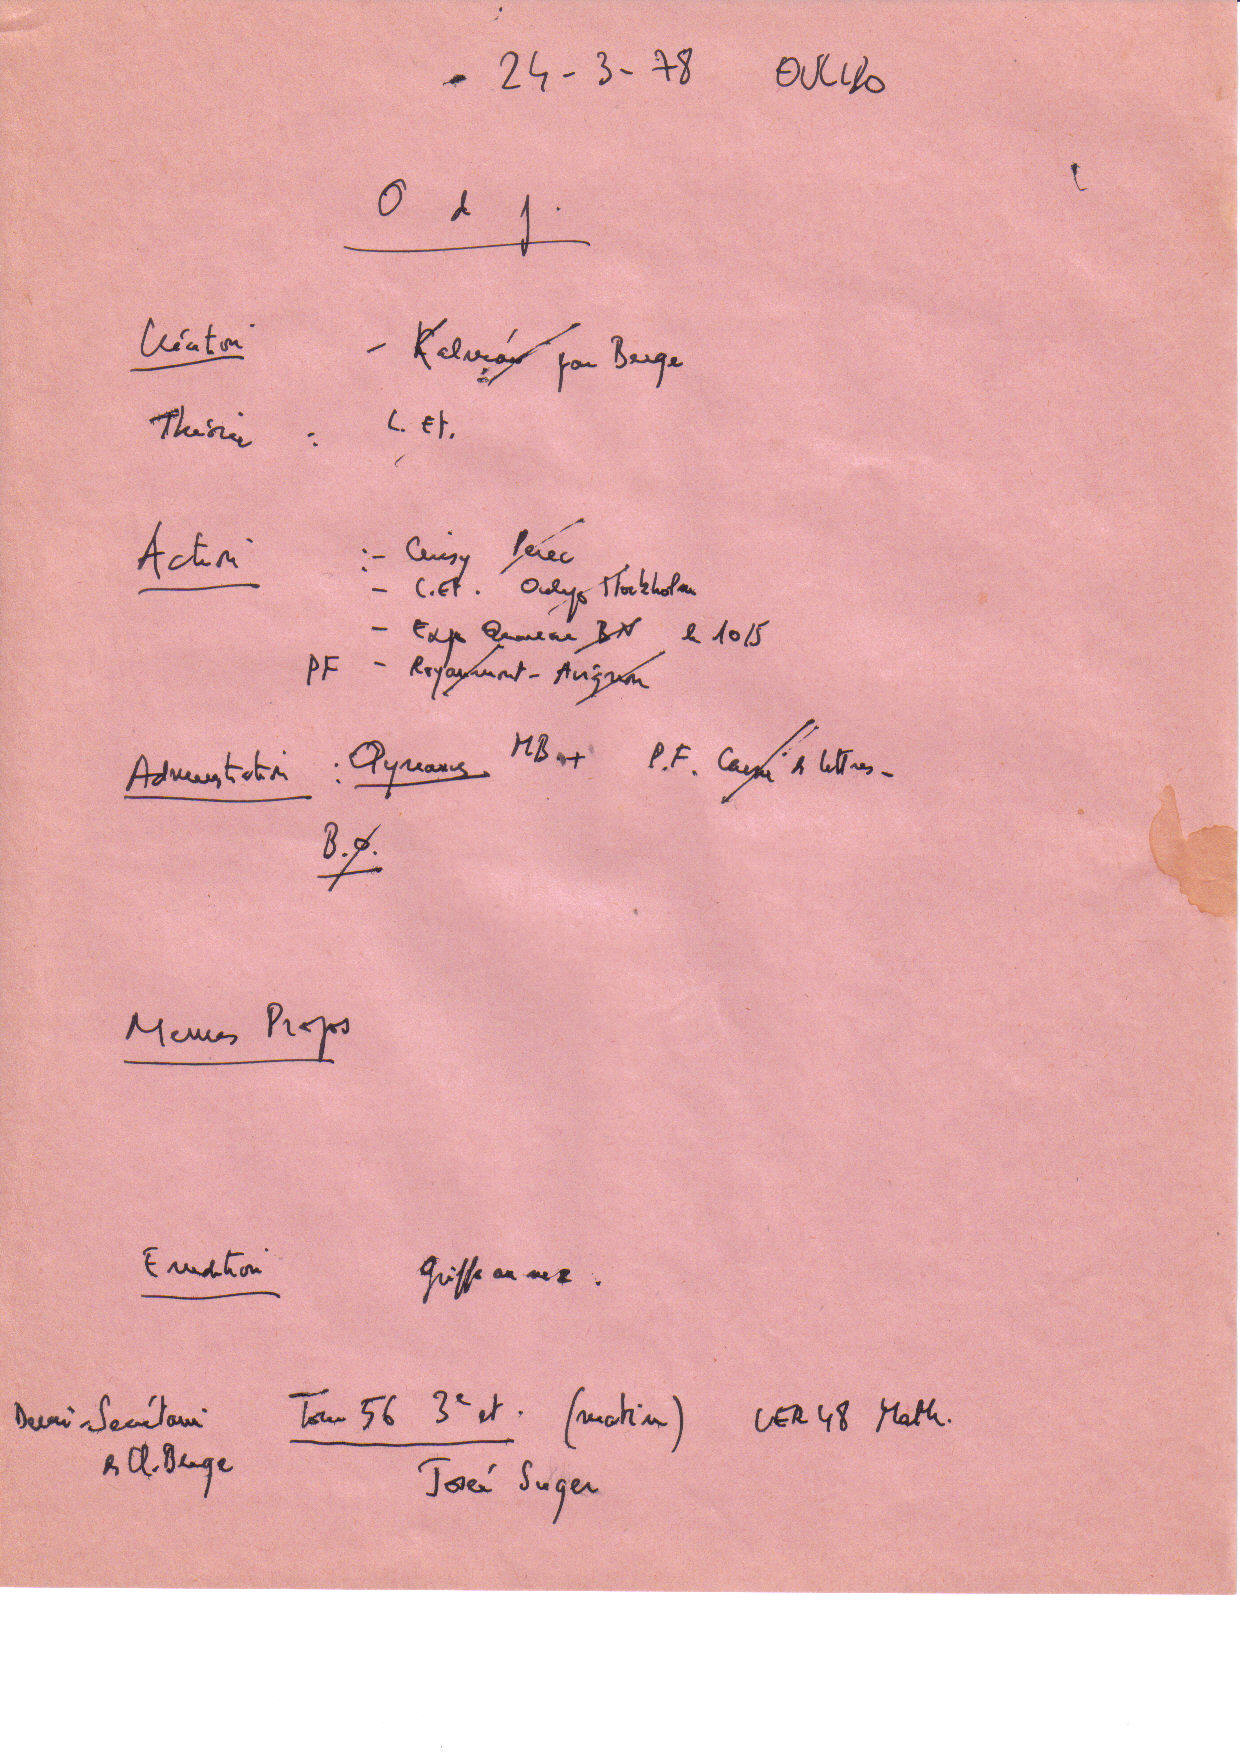 - 24-3-78 OULIPO
O d j.
Création - Kalman par Berge
Théorie : L. Et.
Action :- Cerisy Perec
- C. Et. Oulipo Stockholm
- Expo Queneau BN le 10/5
PF - Royaumont - Avignon
Administration : MB P.F. Caisse des lettres -
B.O.
Menus Propos
Erudition Griffonnez.
Demi-Secrétaire Tour 56 3e et. (matin) UER 48 Math.
de Cl. Berge José Suger